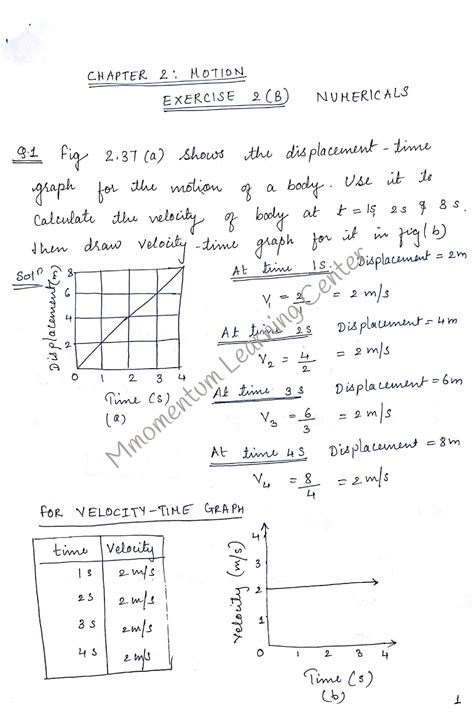 CHAPTER 2: MOTION
EXERCISE 2(B) NUMERICALS
Q.1 Fig 2.37 (a) shows the displacement-time
graph for the motion of a body. Use it to
Calculate the velocity of body at t = 1s, 2s & 3s.
Then draw velocity-time graph for it in fig(b)
Solⁿ
Displacement(m)
8
6
4
2
0 1 2 3 4
Time (s)
(a)
At time 1s, Displacement = 2m
V₁ = 2/1 = 2 m/s
At time 2s Displacement = 4m
V₂ = 4/2 = 2 m/s
At time 3s Displacement = 6m
V₃ = 6/3 = 2 m/s
At time 4s Displacement = 8m
V₄ = 8/4 = 2 m/s
FOR VELOCITY-TIME GRAPH
time Velocity
1s 2 m/s
2s 2 m/s
3s 2 m/s
4s 2 m/s
Velocity (m/s)
4
3
2
1
0 1 2 3 4
Time (s)
(b)
Mmomentum Learning Center
1